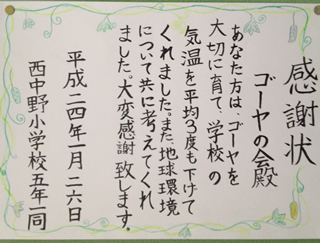 感謝状
ゴーヤの会殿
あなた方は、ゴーヤを
大切に育て、学校の
気温を平均3度も下げて
くれました。また、地球環境
について共に考えてくれ
ました。大変感謝致します。
平成二四年一月二六日
西中野小学校五年一同